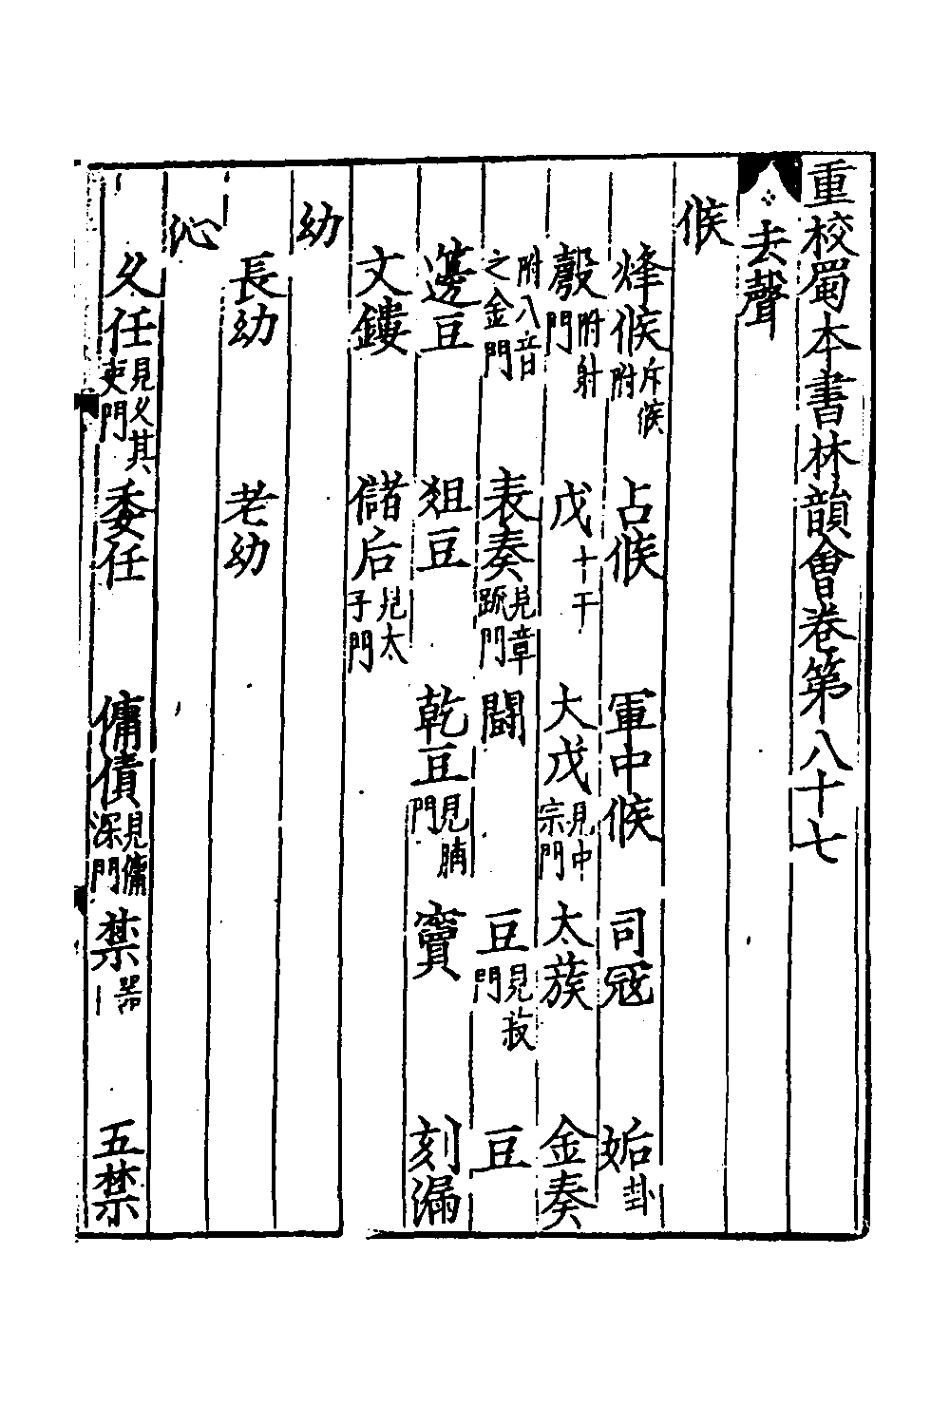 重校蜀本書林韻會卷第八十七
去聲
候
烽候斥候附 占候 軍中候 司寇 姤卦
彀附射門 戊十干 大戊見中宗門 太蔟 金奏
附八音之金門 表奏見章䟽門 鬪 豆見菽門 豆
籩豆 俎豆 乾豆見脯門 竇 刻漏
文鏤 儲后見太子門
幼
長幼 老幼
沁
久任見久其吏門 委任 傭債見傭深門 禁器 五禁